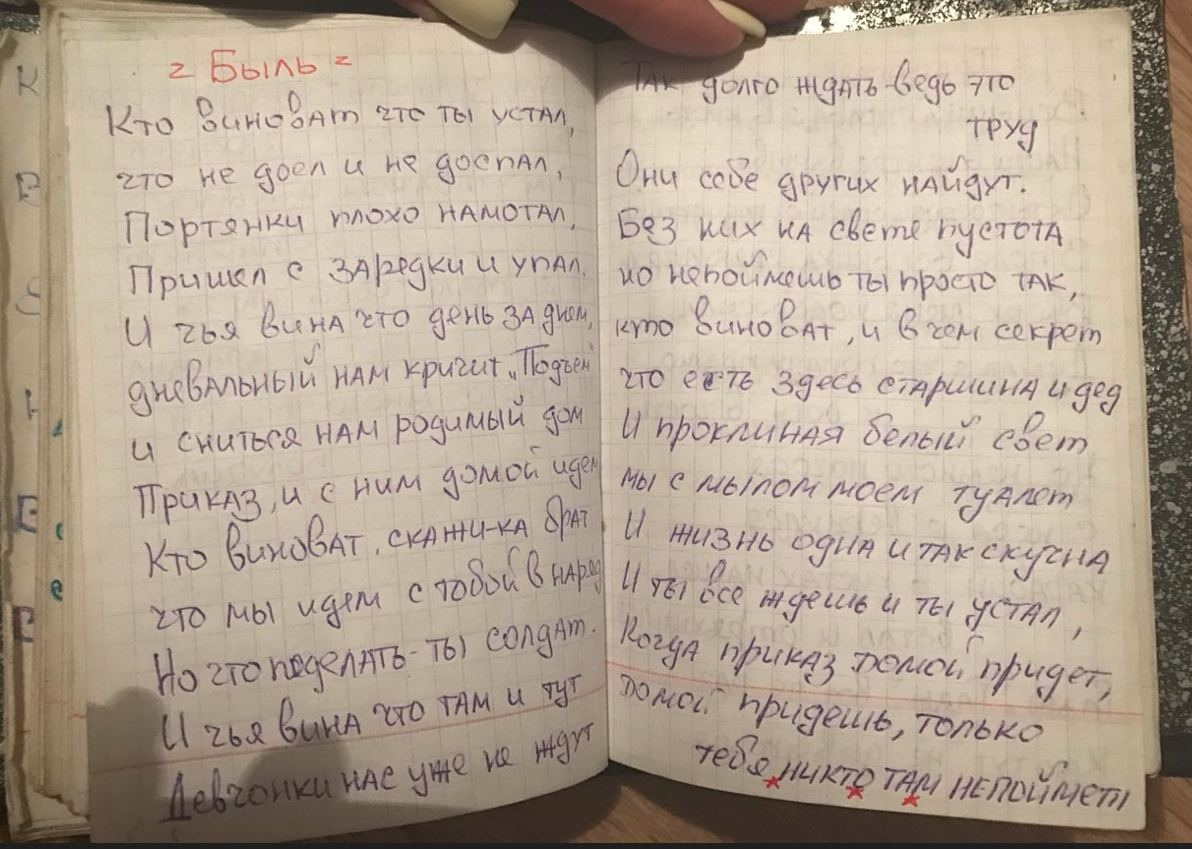 = Быль =
Кто виноват что ты устал,
что не доел и не доспал,
Портянки плохо намотал,
Пришел с зарядки и упал.
И чья вина что день за днем,
дневальный нам кричит „Подъем"
и сниться нам родимый дом
Приказ, и с ним домой идем
Кто виноват, скажи-ка брат
что мы идем с тобой в наряд
Но что поделать - ты солдат.
И чья вина что там и тут
Девчонки нас уже не ждут
Так долго ждать-ведь это
труд
Они себе других найдут.
Без них на свете пустота
но непоймешь ты просто так,
кто виноват, и в чем секрет
что есть здесь старшина и дед
И проклиная белый свет
мы с мылом моем туалет
И жизнь одна и так скучна
И ты все ждешь и ты устал,
Когда приказ домой придет,
домой придешь, только
тебя никто там непоймет!
К
Р
Е
Р